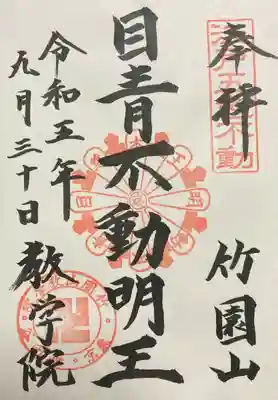 奉拝
竹園山
目青不動明王
令和五年
九月三十日
教学院